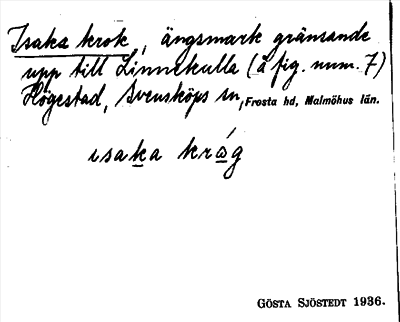 Isaka krok, ängsmark gränsande
upp till Linnekulla (å fig. num. 7)
Högestad, Svensköps sn, Frosta hd, Malmöhus län.
isaka kròg
GÖSTA SJÖSTEDT 1936.